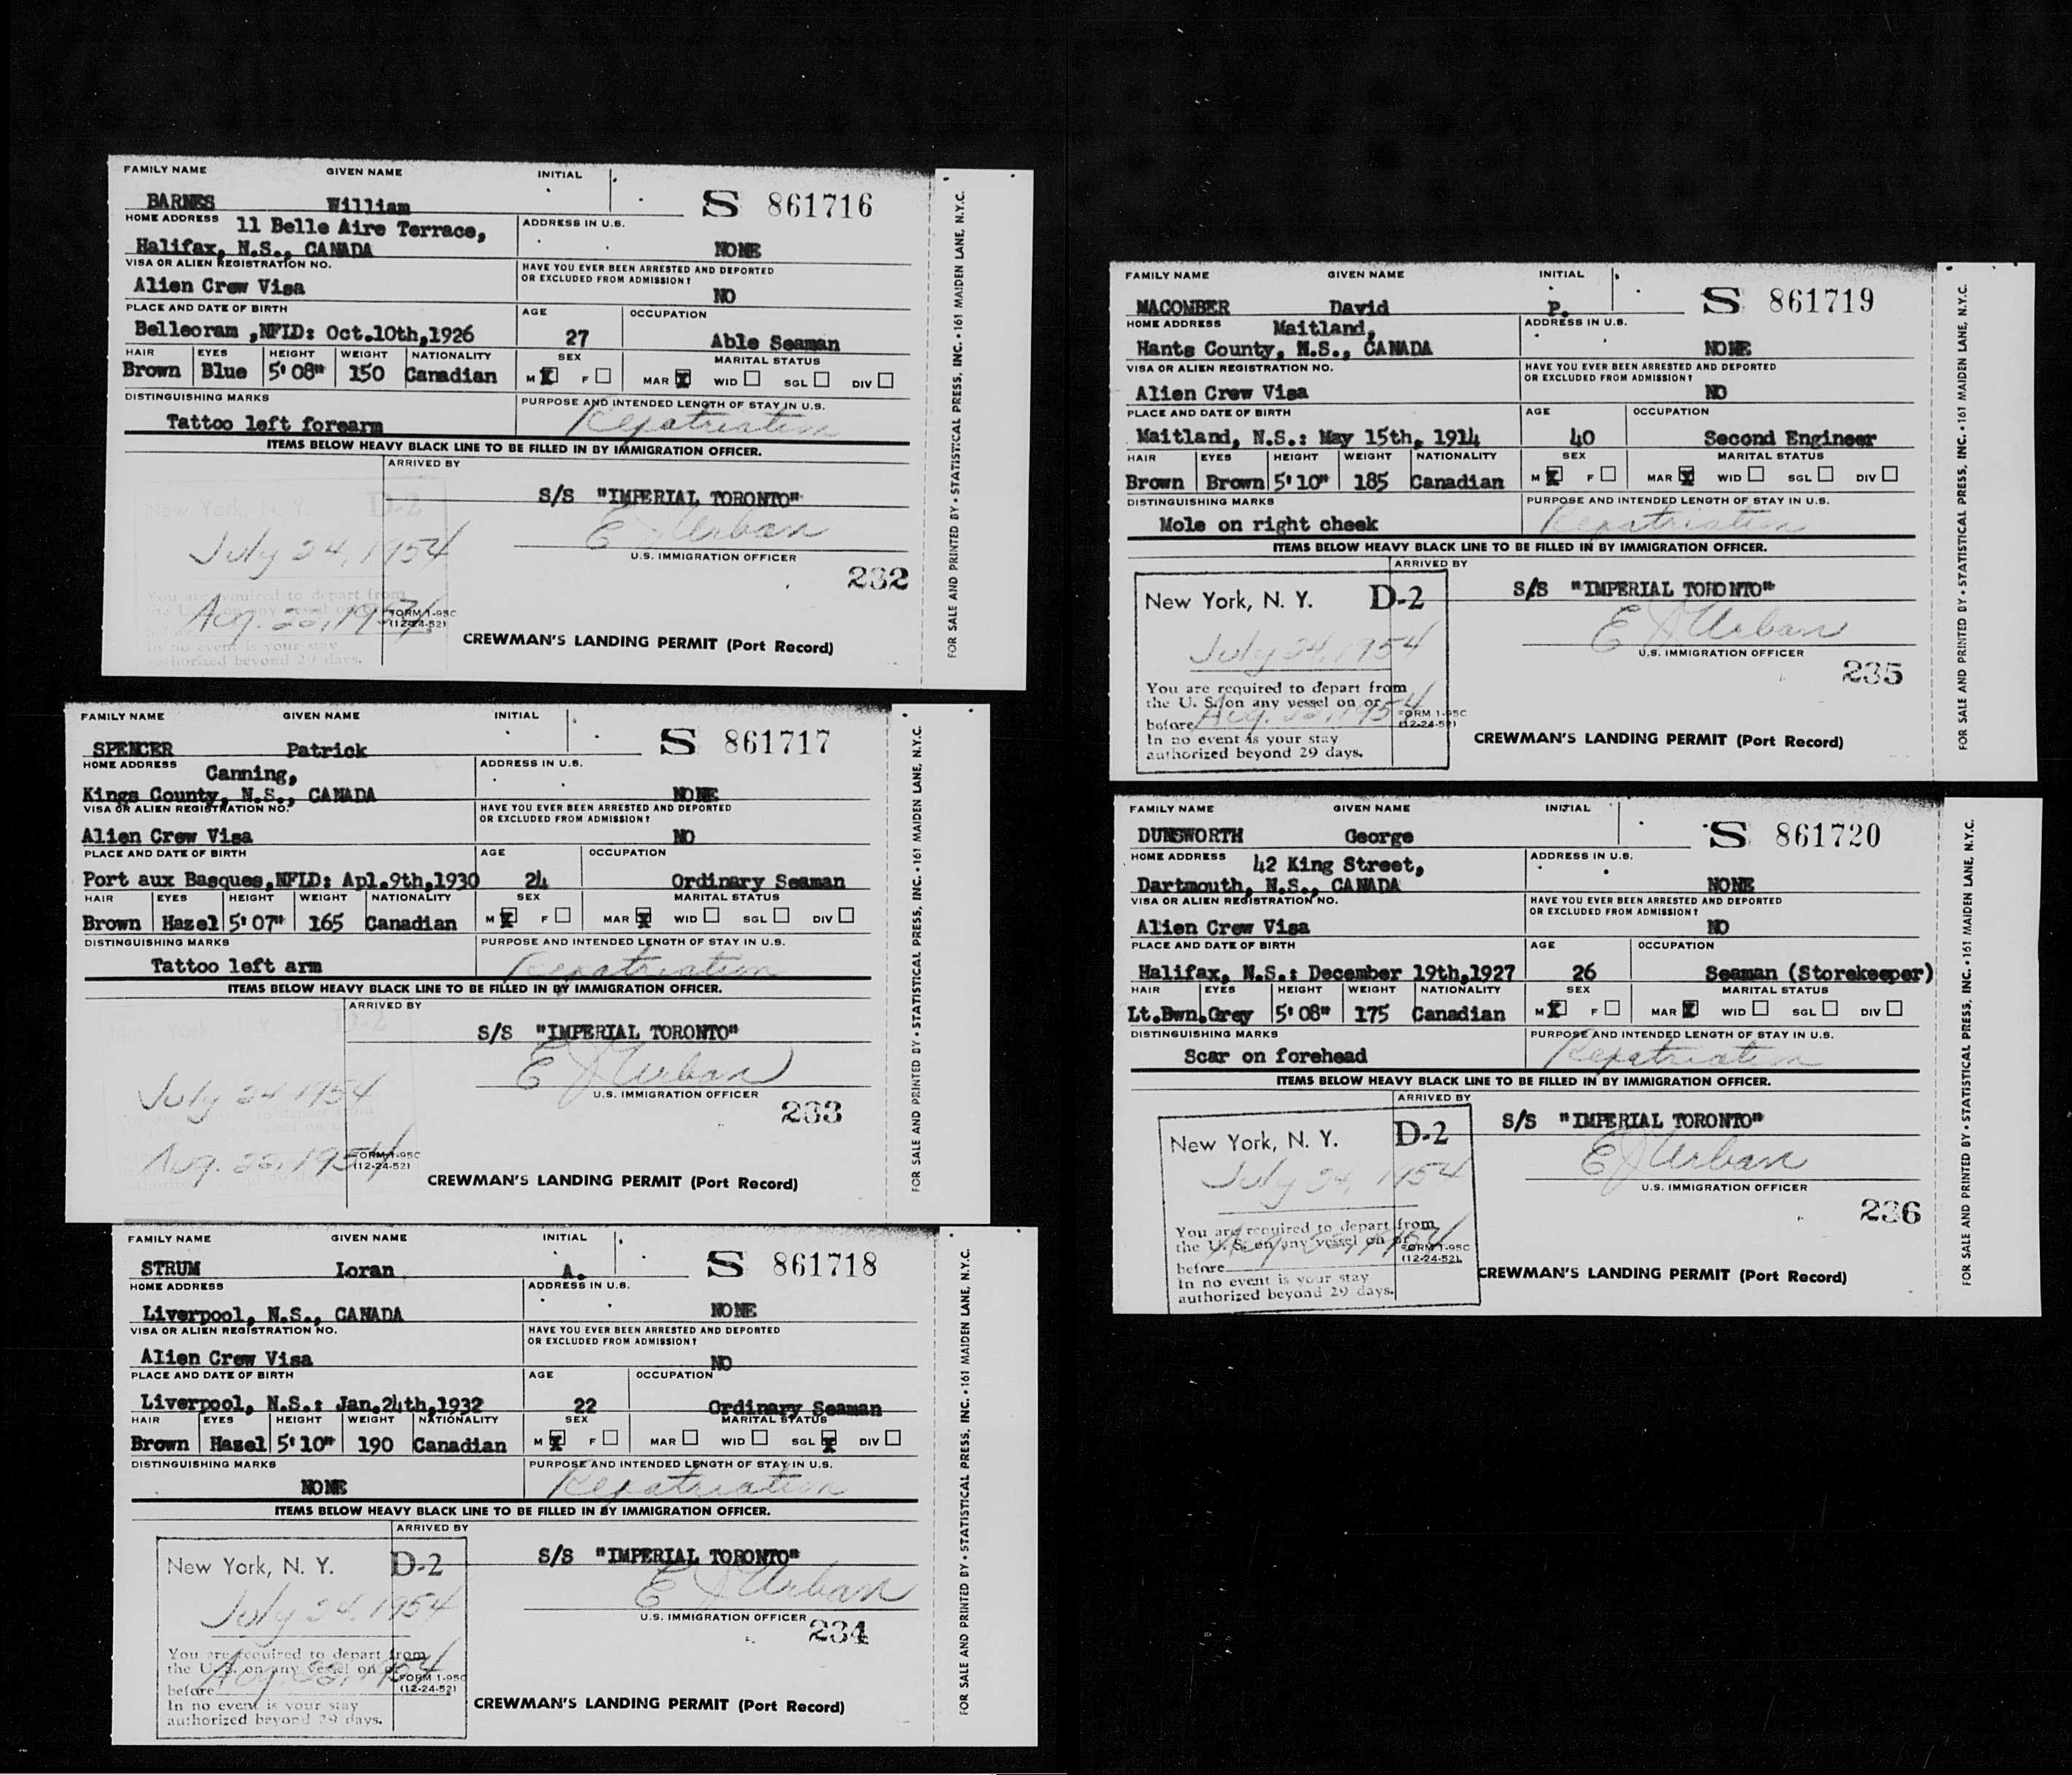 FAMILY NAME GIVEN NAME INITIAL
BARNES William S 861716
HOME ADDRESS 11 Belle Aire Terrace, ADDRESS IN U.S.
Halifax, N.S., CANADA NONE
VISA OR ALIEN REGISTRATION NO. HAVE YOU EVER BEEN ARRESTED AND DEPORTED
OR EXCLUDED FROM ADMISSION?
Alien Crew Visa NO
PLACE AND DATE OF BIRTH AGE OCCUPATION
Belleoram ,NFLD: Oct.10th,1926 27 Able Seaman
HAIR EYES HEIGHT WEIGHT NATIONALITY SEX MARITAL STATUS
Brown Blue 5'08" 150 Canadian M X F MAR X WID SGL DIV
DISTINGUISHING MARKS PURPOSE AND INTENDED LENGTH OF STAY IN U.S.
Tattoo left forearm Repatriation
ITEMS BELOW HEAVY BLACK LINE TO BE FILLED IN BY IMMIGRATION OFFICER.
ARRIVED BY
S/S "IMPERIAL TORONTO"
New York, N. Y. D-2
July 24, 1954 E J Urban
U.S. IMMIGRATION OFFICER
232
You are required to depart from
the U. S. on any vessel on or
before Aug. 22, 1954 FORM I-95C
(12-24-52)
In no event is your stay
authorized beyond 29 days.
CREWMAN'S LANDING PERMIT (Port Record)
FOR SALE AND PRINTED BY • STATISTICAL PRESS, INC. • 161 MAIDEN LANE, N.Y.C.
FAMILY NAME GIVEN NAME INITIAL
SPENCER Patrick S 861717
HOME ADDRESS Canning, ADDRESS IN U.S.
Kings County, N.S., CANADA NONE
VISA OR ALIEN REGISTRATION NO. HAVE YOU EVER BEEN ARRESTED AND DEPORTED
OR EXCLUDED FROM ADMISSION?
Alien Crew Visa NO
PLACE AND DATE OF BIRTH AGE OCCUPATION
Port aux Basques,NFLD: Apl.9th,1930 24 Ordinary Seaman
HAIR EYES HEIGHT WEIGHT NATIONALITY SEX MARITAL STATUS
Brown Hazel 5'07" 165 Canadian M X F MAR X WID SGL DIV
DISTINGUISHING MARKS PURPOSE AND INTENDED LENGTH OF STAY IN U.S.
Tattoo left arm Repatriation
ITEMS BELOW HEAVY BLACK LINE TO BE FILLED IN BY IMMIGRATION OFFICER.
ARRIVED BY
S/S "IMPERIAL TORONTO"
D-2
July 24 1954 E J Urban
U.S. IMMIGRATION OFFICER
233
Aug. 22, 1954 FORM I-95C
(12-24-52)
CREWMAN'S LANDING PERMIT (Port Record)
FOR SALE AND PRINTED BY • STATISTICAL PRESS, INC. • 161 MAIDEN LANE, N.Y.C.
FAMILY NAME GIVEN NAME INITIAL
STRUM Loran A. S 861718
HOME ADDRESS ADDRESS IN U.S.
Liverpool, N.S., CANADA NONE
VISA OR ALIEN REGISTRATION NO. HAVE YOU EVER BEEN ARRESTED AND DEPORTED
OR EXCLUDED FROM ADMISSION?
Alien Crew Visa NO
PLACE AND DATE OF BIRTH AGE OCCUPATION
Liverpool, N.S.: Jan.24th,1932 22 Ordinary Seaman
HAIR EYES HEIGHT WEIGHT NATIONALITY SEX MARITAL STATUS
Brown Hazel 5'10" 190 Canadian M X F MAR WID SGL X DIV
DISTINGUISHING MARKS PURPOSE AND INTENDED LENGTH OF STAY IN U.S.
NONE Repatriation
ITEMS BELOW HEAVY BLACK LINE TO BE FILLED IN BY IMMIGRATION OFFICER.
ARRIVED BY
S/S "IMPERIAL TORONTO"
New York, N. Y. D-2
July 24, 1954 E J Urban
U.S. IMMIGRATION OFFICER
234
You are required to depart from
the U. S. on any vessel on or
before Aug. 22, 1954 FORM I-95C
(12-24-52)
In no event is your stay
authorized beyond 29 days.
CREWMAN'S LANDING PERMIT (Port Record)
FOR SALE AND PRINTED BY • STATISTICAL PRESS, INC. • 161 MAIDEN LANE, N.Y.C.
FAMILY NAME GIVEN NAME INITIAL
MACOMBER David P. S 861719
HOME ADDRESS Maitland, ADDRESS IN U.S.
Hants County, N.S., CANADA NONE
VISA OR ALIEN REGISTRATION NO. HAVE YOU EVER BEEN ARRESTED AND DEPORTED
OR EXCLUDED FROM ADMISSION?
Alien Crew Visa NO
PLACE AND DATE OF BIRTH AGE OCCUPATION
Maitland, N.S.: May 15th, 1914 40 Second Engineer
HAIR EYES HEIGHT WEIGHT NATIONALITY SEX MARITAL STATUS
Brown Brown 5'10" 185 Canadian M X F MAR X WID SGL DIV
DISTINGUISHING MARKS PURPOSE AND INTENDED LENGTH OF STAY IN U.S.
Mole on right cheek Repatriation
ITEMS BELOW HEAVY BLACK LINE TO BE FILLED IN BY IMMIGRATION OFFICER.
ARRIVED BY
S/S "IMPERIAL TORONTO"
New York, N. Y. D-2
July 24, 1954 E J Urban
U.S. IMMIGRATION OFFICER
235
You are required to depart from
the U. S. on any vessel on or
before Aug. 22, 1954 FORM I-95C
(12-24-52)
In no event is your stay
authorized beyond 29 days.
CREWMAN'S LANDING PERMIT (Port Record)
FOR SALE AND PRINTED BY • STATISTICAL PRESS, INC. • 161 MAIDEN LANE, N.Y.C.
FAMILY NAME GIVEN NAME INITIAL
DUNSWORTH George S 861720
HOME ADDRESS 42 King Street, ADDRESS IN U.S.
Dartmouth, N.S., CANADA NONE
VISA OR ALIEN REGISTRATION NO. HAVE YOU EVER BEEN ARRESTED AND DEPORTED
OR EXCLUDED FROM ADMISSION?
Alien Crew Visa NO
PLACE AND DATE OF BIRTH AGE OCCUPATION
Halifax, N.S.: December 19th,1927 26 Seaman (Storekeeper)
HAIR EYES HEIGHT WEIGHT NATIONALITY SEX MARITAL STATUS
Lt.Bwn.Grey 5'08" 175 Canadian M X F MAR X WID SGL DIV
DISTINGUISHING MARKS PURPOSE AND INTENDED LENGTH OF STAY IN U.S.
Scar on forehead Repatriation
ITEMS BELOW HEAVY BLACK LINE TO BE FILLED IN BY IMMIGRATION OFFICER.
ARRIVED BY
S/S "IMPERIAL TORONTO"
New York, N. Y. D-2
July 24, 1954 E J Urban
U.S. IMMIGRATION OFFICER
236
You are required to depart from
the U. S. on any vessel on or
before Aug. 22, 1954 FORM I-95C
(12-24-52)
In no event is your stay
authorized beyond 29 days.
CREWMAN'S LANDING PERMIT (Port Record)
FOR SALE AND PRINTED BY • STATISTICAL PRESS, INC. • 161 MAIDEN LANE, N.Y.C.